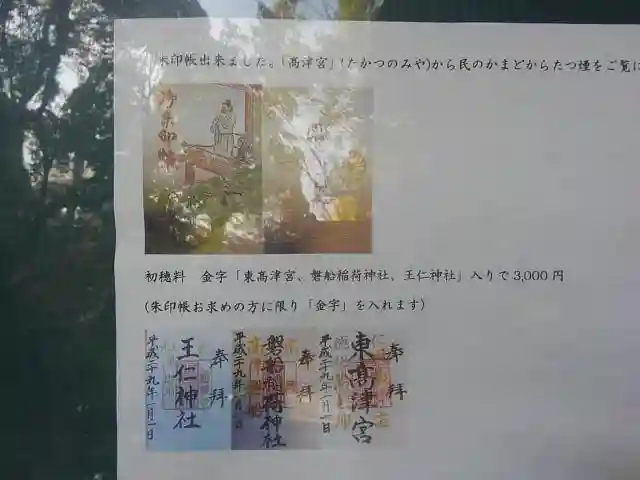 朱印帳出来ました。「高津宮」(たかつのみや)から民のかまどからたつ煙をご覧に
御朱印帳
初穂料　金字「東高津宮、磐船稲荷神社、王仁神社」入りで 3,000 円
(朱印帳お求めの方に限り「金字」を入れます)
奉拝
東高津宮
平成二十九年一月一日
奉拝
磐船稲荷神社
平成二十九年一月一日
奉拝
王仁神社
平成二十九年一月一日